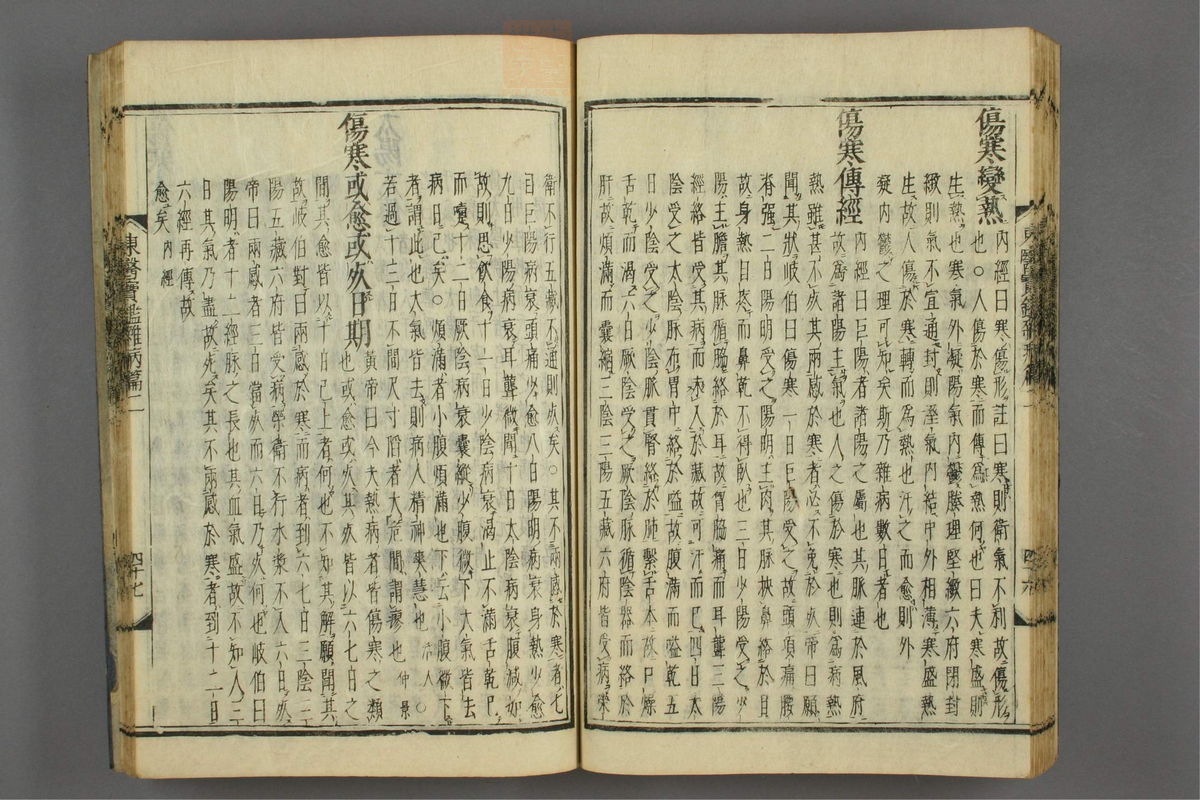 傷寒變熱
內經曰寒傷形註曰寒則衛氣不利故傷形
也○人傷於寒而傳爲熱何也曰夫寒盛則
生熱也寒氣外凝陽氣內鬱腠理堅緻六府閉封
緻則氣不宣通封則濕氣內結中外相薄寒盛熱
生故人傷於寒轉而爲熱也汗之而愈則外
凝內鬱之理可知矣斯乃雜病數日者也
傷寒傳經
內經曰巨陽者諸陽之屬也其脉連於風府
故爲諸陽主氣也人之傷於寒也則爲病熱
熱雖甚不死其兩感於寒者必不免於死帝曰願
聞其狀岐伯曰傷寒一日巨陽受之故頭項痛腰
脊强二日陽明受之陽明主肉其脉挾鼻絡於目
故身熱目疼而鼻乾不得臥也三日少陽受之少
陽主膽其脉循脇絡於耳故胷脇痛而耳聾三陽
經絡皆受其病而未入於藏故可汗而已四日太
陰受之太陰脉布胃中絡於嗌故腹滿而嗌乾五
日少陰受之少陰脉貫腎絡於肺繫舌本故口燥
舌乾而渴六日厥陰受之厥陰脉循陰器而絡於
肝故煩滿而囊縮三陰三陽五藏六府皆受病榮
東醫寶鑑雜病篇二
四十六
衛不行五藏不通則死矣○其不兩感於寒者七
日巨陽病衰頭痛少愈八日陽明病衰身熱少愈
九日少陽病衰耳聾微聞十日太陰病衰腹減如
故則思飮食十一日少陰病衰渴止不滿舌乾已
而嚔十二日厥陰病衰囊縱少腹微下大氣皆去
病日已矣○煩滿者小腹煩滿也下云小腹微下
者謂此也大氣皆去則病人精神爽慧也活人○
若過十三日不間尺寸陷者大危間謂瘳也仲景
傷寒或愈或死日期
黃帝曰今夫熱病者皆傷寒之類
也或愈或死其死皆以六七日之
間其愈皆以十日已上者何也不知其解願聞其
故岐伯對曰兩感於寒而病者到六七日三陰三
陽五藏六府皆受病榮衛不行水漿不入六日死
帝曰兩感者三日當死而六日乃死何也岐伯曰
陽明者十二經脉之長也其血氣盛故不知人三
日其氣乃盡故死矣其不兩感於寒者到十二日
六經再傳故
愈矣內經
東醫寶鑑雜病篇二
四十七